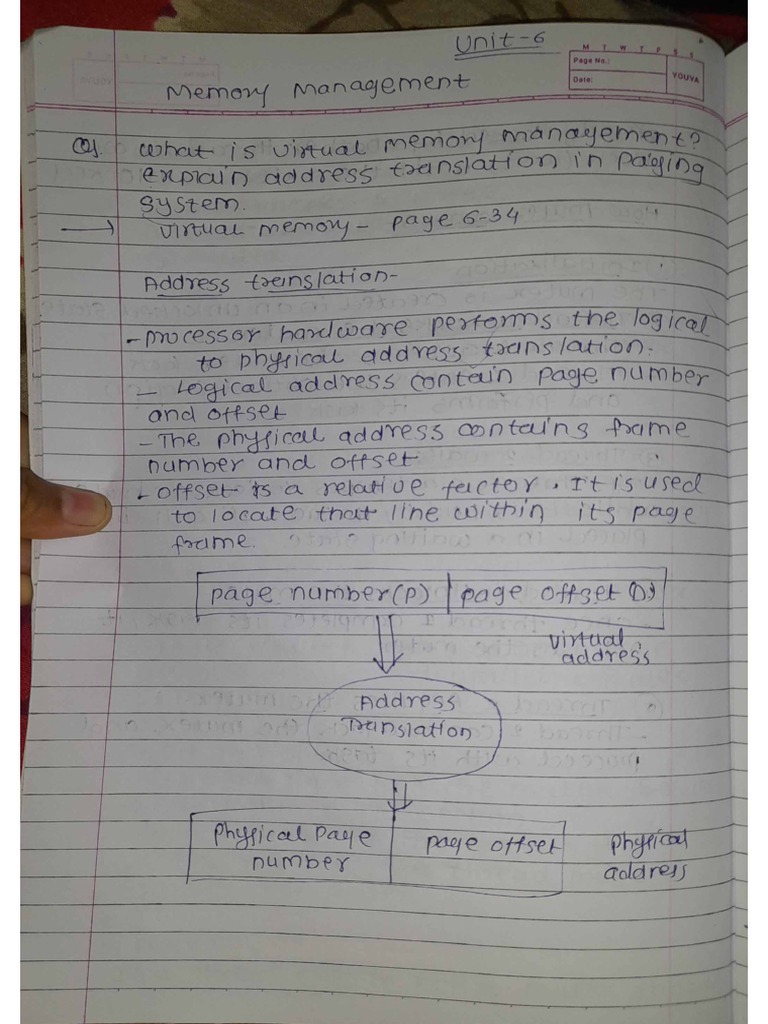 Unit-6
M T W T F S S
Page No.:
Date:
YOUVA
Memory Management
Q1. What is virtual memory management?
explain address translation in paging
system.
→ virtual memory - page 6-34
Address translation-
- processor hardware performs the logical
to physical address translation.
- Logical address contain page number
and offset
- The physical address contains frame
number and offset
- offset is a relative factor. It is used
to locate that line within its page
frame.
page number(P) | page offset (D)
virtual
address
Address
Translation
Physical Page
number
page offset
physical
address